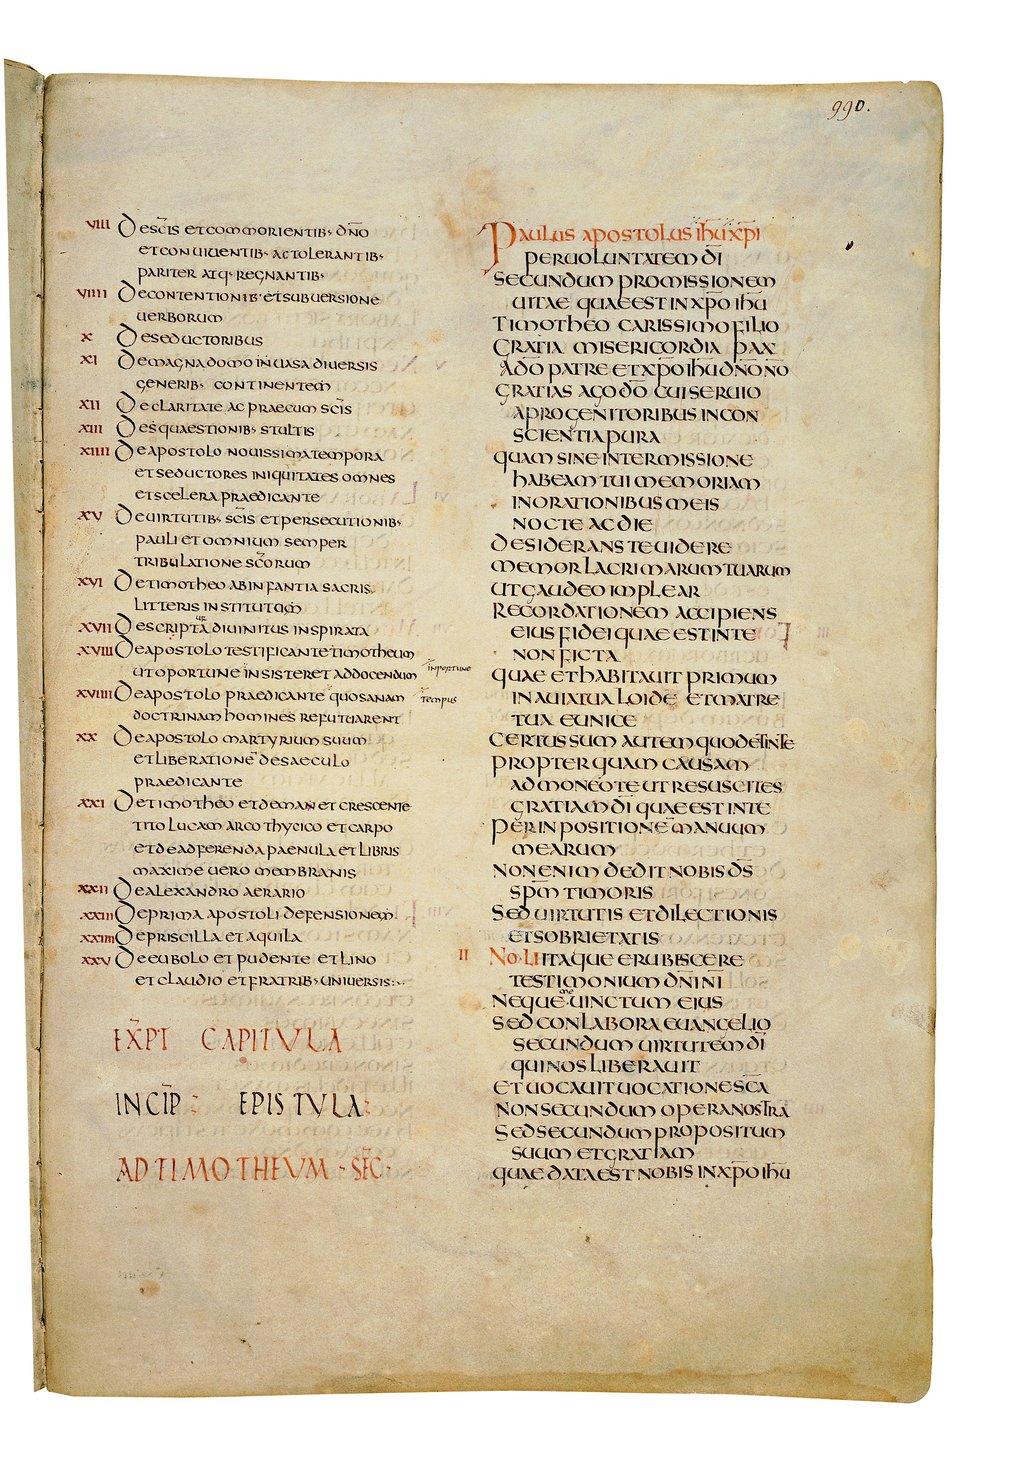 990.
VIII De sc̅is et commorientib· dn̅o
et conviventib· ac tolerantib·
pariter atq· regnantib·
VIIII De contentionib· et subversione
verborum
X De seductoribus
XI De magna domo in vasa diversis
generib· continentem
XII De claritate ac praecum sc̅is
XIII De s quaestionib· stultis
XIIII De apostolo novissima tempora
et seductores iniquitates omnes
et scelera praedicante
XV De virtutib· sc̅is et persecutionib·
pauli et omnium semper
tribulatione sc̅orum
XVI De timotheo ab infantia sacris
litteris institutam
XVII De scriptura divinitus inspirata
XVIII De apostolo testificante timotheum
ut oportune insisteret ad docendum
inportune
XVIIII De apostolo praedicante quosanam
tempus
doctrinam homines refutuarent
XX De apostolo martyrium suum
et liberatione de saeculo
praedicante
XXI De timotheo et deman et crescente
tito lucam arcothycico et carpo
et de adferenda paenula et libris
maxime vero membranis
XXII De alexandro aerario
XXIII De prima apostoli defensionem
XXIIII De priscilla et aquila
XXV De eubolo et pudente et lino
et claudio et fratrib· universis
EX̅PT CAPITULA
INCIP̅ : EPISTULA :
AD TIMOTHEUM · SEC̅ ·
Paulus apostolus ih̅u xp̅i
per voluntatem d̅i
secundum promissionem
vitae quae est in xp̅o ih̅u
Timotheo carissimo filio
gratia misericordia pax
a d̅o patre et xp̅o ih̅u dn̅o no
gratias ago d̅o cui servio
a progenitoribus in con
scientia pura
quam sine intermissione
habeam tui memoriam
in orationibus meis
nocte ac die
desiderans te videre
memor lacrimarum tuarum
ut gaudeo implear
recordationem accipiens
eius fidei quae est in te
non ficta
quae et habitavit primum
in avia tua loide et matre
tua eunice
certus sum autem quod et in te
propter quam causam
admoneo te ut resuscites
gratiam d̅i quae est in te
per inpositione manuum
mearum
non enim dedit nobis d̅s
sp̅m timoris
sed virtutis et dilectionis
et sobrietatis
II Noli itaque erubiscere
testimonium dn̅i n̅i
neque me vinctum eius
sed conlabora euangelio
secundum virtutem d̅i
qui nos liberavit
et vocavit vocatione sc̅a
non secundum opera nostra
sed secundum propositum
suum et gratiam
quae data est nobis in xp̅o ih̅u